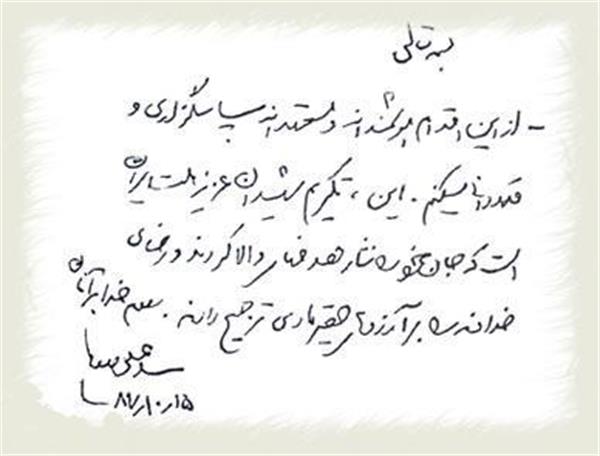 بسمه‌تعالی
- از این اقدام هنرمندانه و متعهدانه سپاسگزاری و
قدردانی میکنم. این، تکریم شهیدان عزیز ملت ایران
است که جان خود را نثار هدفهای والا کردند و رضای
خداوند را بر آرزوهای حقیر مادی ترجیح دادند. سلام خدا بر آنان
سید علی
۸۷/۱۰/۱۵